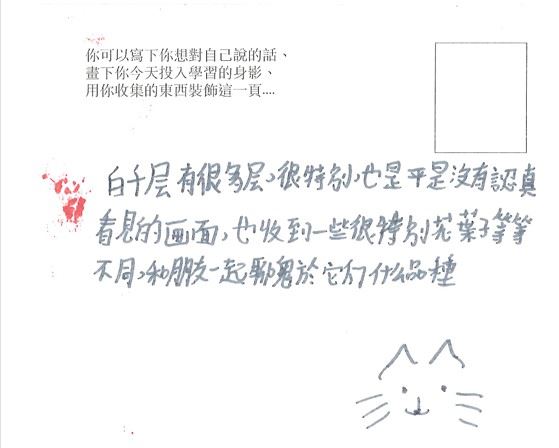 你可以寫下你想對自己說的話、
畫下你今天投入學習的身影、
用你收集的東西裝飾這一頁....
白千层有很多层,很特別,也是平是沒有認真
看見的画面,也收到一些很特別花葉子等等
不同,和朋友一起 於它们什么品種